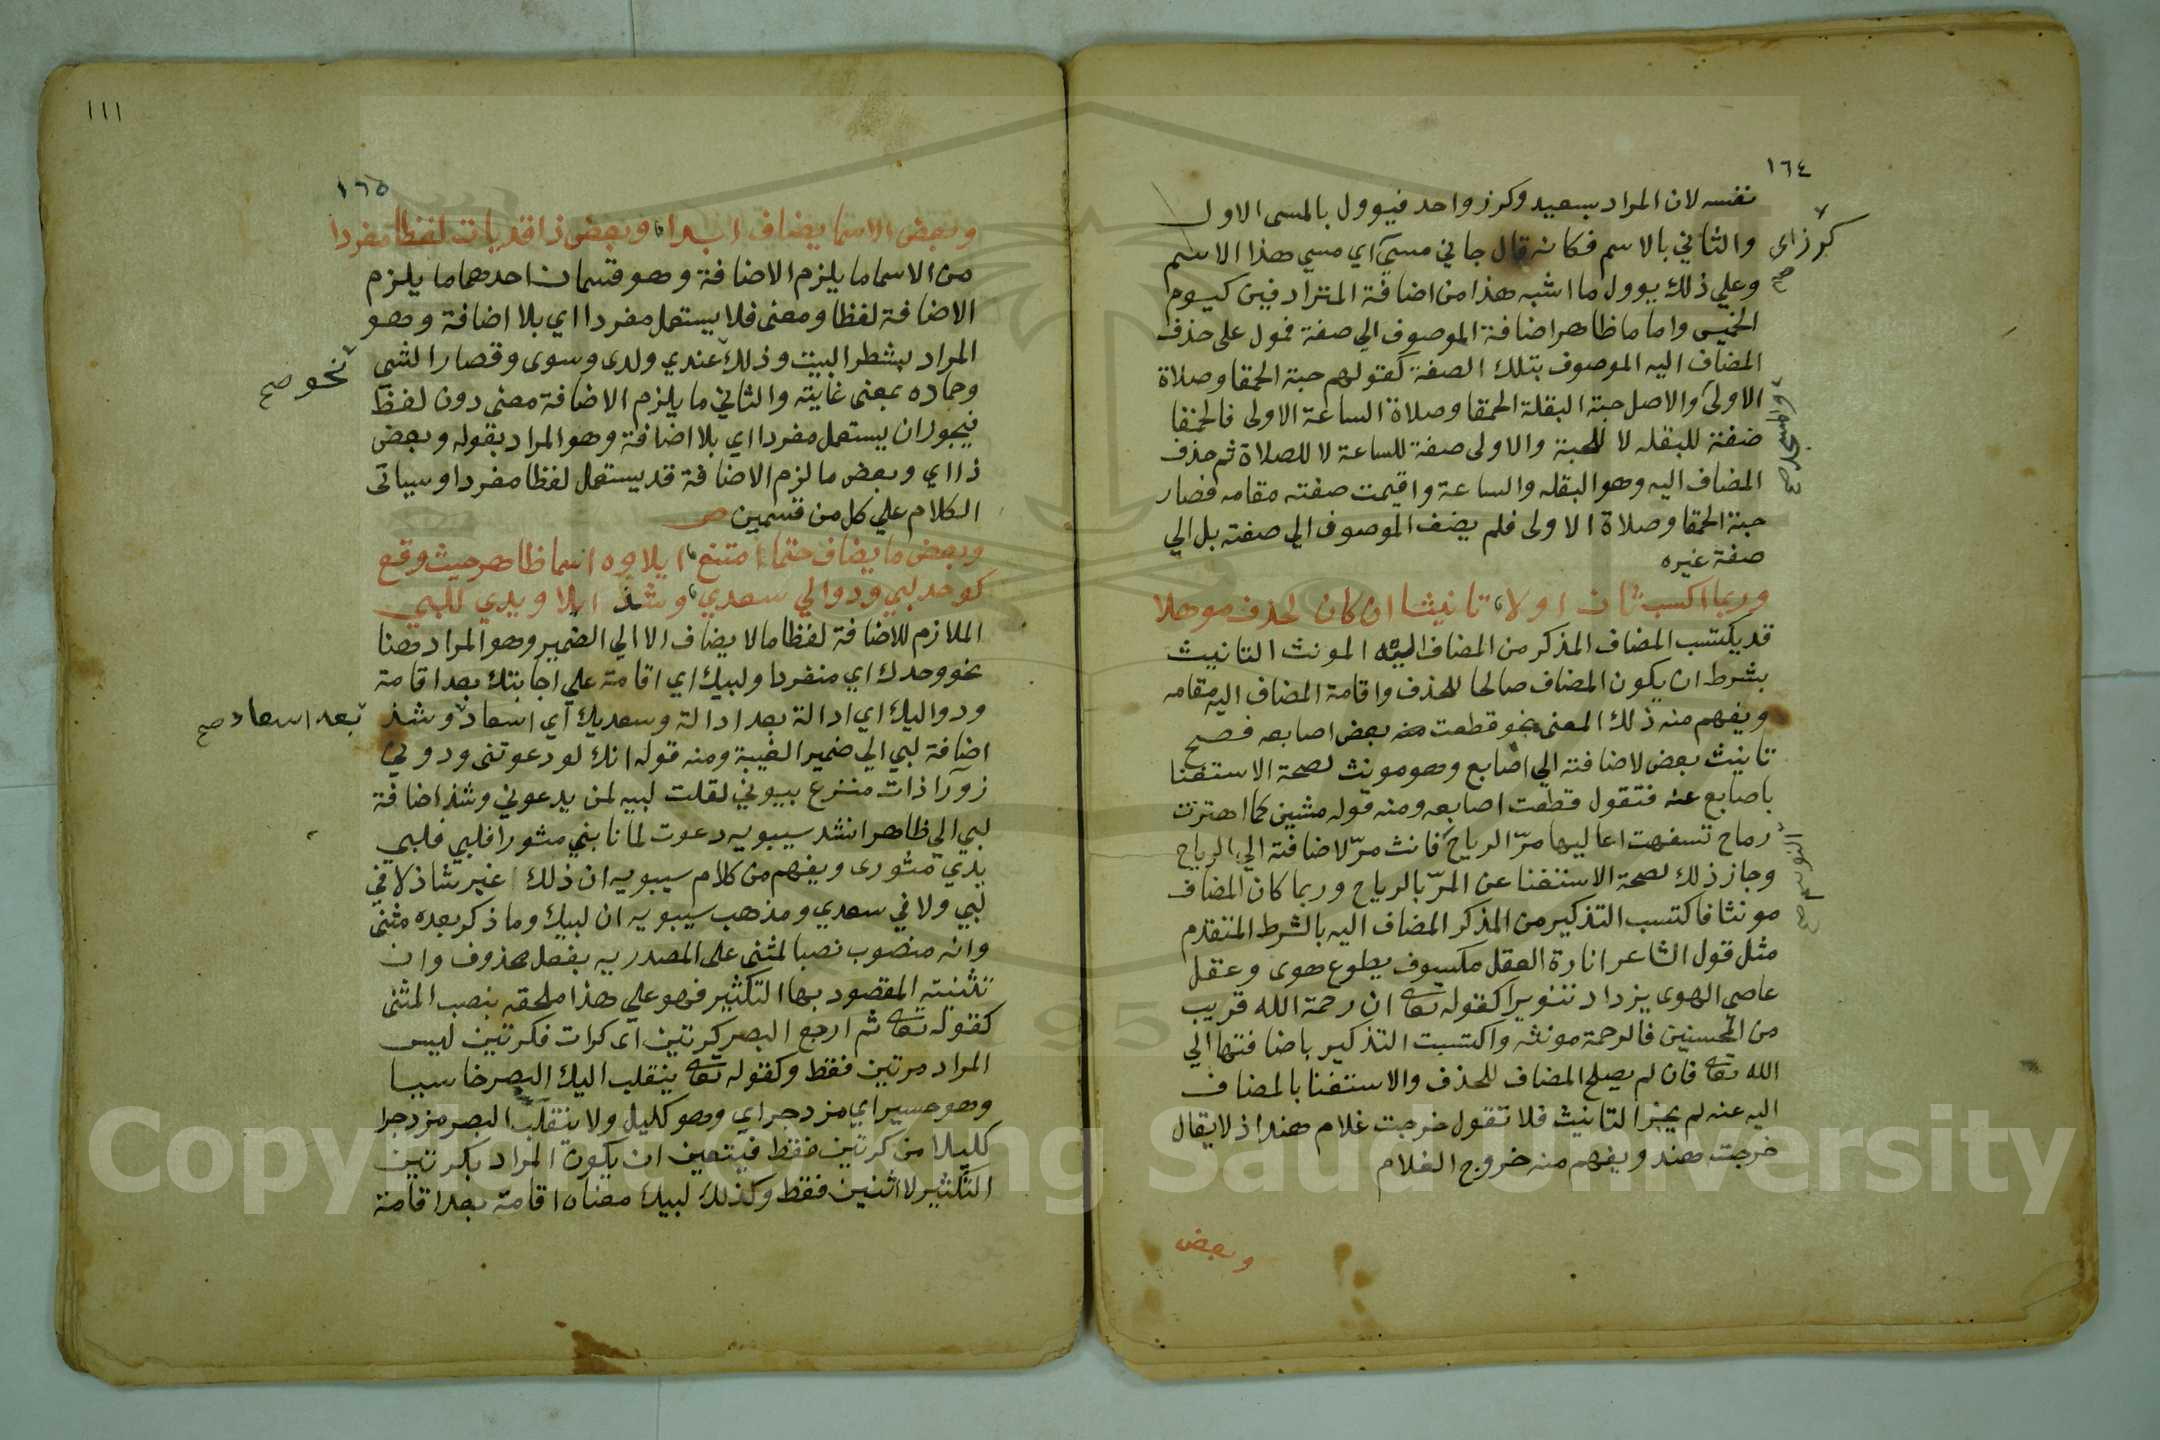 ١٦٤
نفسه لان المراد بسعيد وكرز واحد فيوول بالمسمى الاول
والثاني بالاسم فكانه قال جاني مسمى اي مسمي هذا الاسم
كرز اي صح
وعلي ذلك يوول ما اشبه هذا من اضافة المترادفين كيوم
الخميس واما ما ظاهره اضافة الموصوف الي صفة فمول على حذف
المضاف اليه الموصوف بتلك الصفة كقولهم حبة الحمقا وصلاة
الاولى والاصل حبة البقلة الحمقا وصلاة الساعة الاولى فالحمقا
صفة للبقله لا للحبة والاولى صفة للساعة لا للصلاة ثم حذف
المضاف اليه وهو البقله والساعة واقيمت صفته مقامه فصار
حبة الحمقا وصلاة الاولى فلم يضف الموصوف الي صفته بل الي
صفة غيره
وربما اكسب ثان اولا تانيثا ان كان لحذف موهلا
قد يكتسب المضاف المذكر من المضاف اليه المونث التانيث
بشرط ان يكون المضاف صالحا للحذف واقامة المضاف اليه مقامه
ويفهم منه ذلك المعنى نحو قطعت بعض اصابعه فصح
تانيث بعض لاضافته الي اصابع وهو مونث لصحة الاستغنا
باصابع عنه فتقول قطعت اصابعه ومنه قوله مشين كما اهتزت
رماح تسفهت اعاليها مرّ الرياح فانث مرّ لاضافته الي الرياح
وجاز ذلك لصحة الاستغنا عن المرّ بالرياح وربما كان المضاف
مونثا فاكتسب التذكير من المذكر المضاف اليه بالشرط المتقدم
مثل قول الشاعر انارة العقل مكسوف بطوع هوى وعقل
عاصي الهوى يزداد تنويرا كقوله تعالى ان رحمة الله قريب
من المحسنين فالرحمة مونثه واكتسبت التذكير باضافتها الي
الله تعالى فان لم يصلح المضاف للحذف والاستغنا بالمضاف
اليه عنه لم يجز التانيث فلا تقول خرجت غلام هند اذ لا يقال
خرجت هند ويفهم منه خروج الغلام
وبعض
١١١
١٦٥
وبعض الاسما يضاف ابدا وبعض ذا قد يات لفظا مفردا
من الاسما ما يلزم الاضافة وهو قسمان احدهما ما يلزم
الاضافة لفظا ومعنى فلا يستعمل مفردا اي بلا اضافة وهو
المراد بشطر البيت وذلك عندي ولدى وسوى وقصارا الشي
نحو صح
وحماده بمعنى غايته والثاني ما يلزم الاضافة معنى دون لفظ
فيجوز ان يستعمل مفردا اي بلا اضافة وهو المراد بقوله وبعض
ذا اي وبعض ما لزم الاضافة قد يستعمل لفظا مفردا وسياتى
الكلام علي كل من قسمين ص
وبعض ما يضاف حتما امتنع ايلاوه اسما ظاهر حيث وقع
كوحد لبي ودوالي سعدي وشذ ايلا ويدي للبي
الملازم للاضافة لفظا ما لا يضاف الا الي الضمير وهو المراد هنا
نحو وحدك اي منفردا ولبيك اي اقامة علي اجابتك بعد اقامة
ودواليك اي ادالة بعد ادالة وسعديك اي اسعادا وشذ
بعد اسعاد صح
اضافة لبي الي ضمير الغيبة ومنه قوله انك لو دعوتنى ودوني
زورا ذات منزع بيوني لقلت لبيه لمن يدعوني وشذ اضافة
لبي الي ظاهر انشد سيبويه دعوت لما نابني مسورا فلبي فلبي
يدي مسورى ويفهم من كلام سيبويه ان ذلك غير شاذ لا في
لبي ولا في سعدي ومذهب سيبويه ان لبيك وما ذكر بعده مثنى
وانه منصوب نصبا لمثنى على المصدريه بفعل محذوف وان
تثنيته المقصود بها التكثير فهو علي هذا ملحقه بنصب المثنى
كقوله تعالى ثم ارجع البصر كرتين اى كرات فكرتين ليس
المراد مرتين فقط وكقوله تعالى ينقلب اليك البصر خاسيا
وهو حسير اي مزدجر اي وهو كليل ولا ينقلب البصر مزدجرا
كليلا من كرتين فقط فيتعين ان يكون المراد بكرتين
التكثير لا اثنين فقط وكذلك لبيك معناه اقامة بعد اقامة